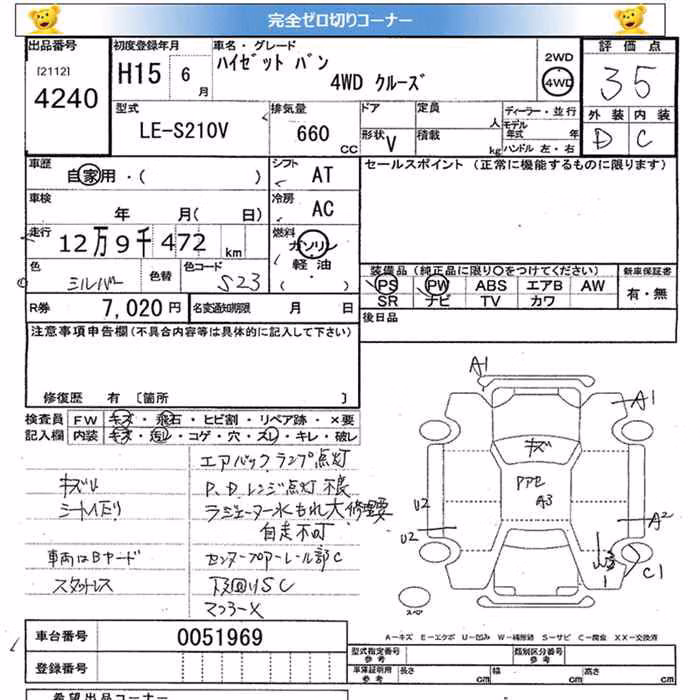 完全ゼロ切りコーナー
出品番号
[2112]
4240
初度登録年月
H15 6月
車名・グレード
ハイゼット バン
4WD クルーズ
2WD
4WD
評価点
35
外装 内装
D C
型式
LE-S210V
排気量
660
CC
ドア
形状 V
定員
人
積載
kg
ディーラー・並行
モデル
年式 年
ハンドル 左・右
車歴
自家用・( )
シフト
AT
セールスポイント (正常に機能するものに限ります)
車検
年 月( 日)
冷房
AC
走行
12万9千472 km
燃料
ガソリン
軽油
( ・ )
色
シルバー
色替
色コード
S23
装備品 (純正品に限り〇をつけてください)
PS PW ABS エアB AW
SR ナビ TV カワ
新車保証書
有・無
R券 7,020円
名変通知期限 月 日
後日品
注意事項申告欄(不具合内容等は具体的に記入して下さい)
修復歴 有 [箇所 ]
検査員
記入欄
FW キズ・飛石・ヒビ割・リペア跡・×要
内装 キズ・汚レ・コゲ・穴・スレ・キレ・破レ
エアバックランプ点灯
P、Dレンジ点灯不良
ラジエーター水もれ大 修理要
自走不可
センターフロアーレール部C
下廻りSC
マフラーX
キズU
車両はBヤード
スタッドレス
A1
A1
キズ
A3
U2
U2
A2
C1
スペア
車台番号 0051969
登録番号
A-キズ E-エクボ U-凹み W-補修跡 S-サビ C-腐食 XX-交換済
型式指定番号
参考
類別区分番号
参考
車庫証明用
参考
長さ cm
幅 cm
高さ cm
希望出品コーナー